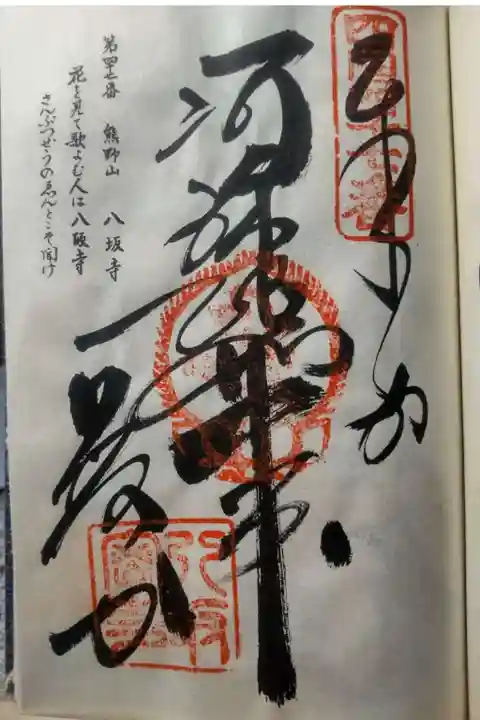 奉納
阿弥陀如来
八坂寺
第四十七番 熊野山 八坂寺
花を見て歌よむ人は八阪寺
さんぶつぜうのゑんとこそ聞け